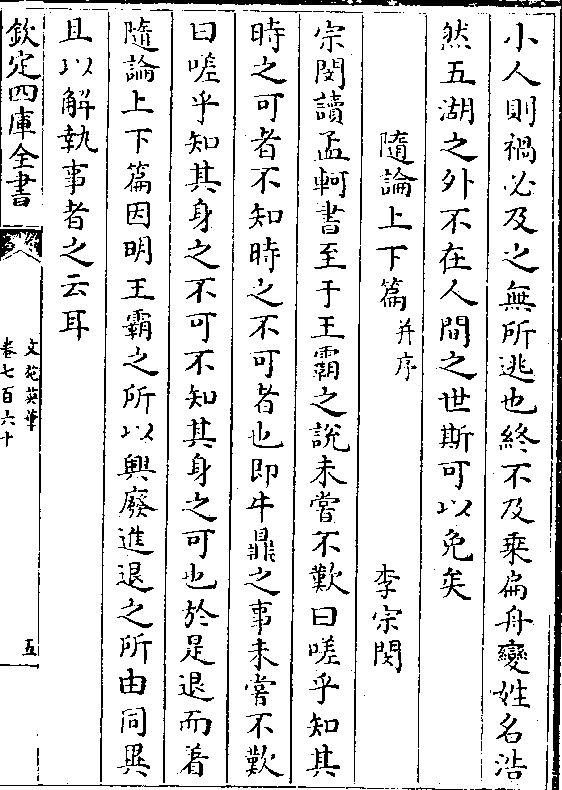 小人則禍必及之無所逃也終不及乘扁舟變姓名浩
然五湖之外不在人間之世斯可以免矣
隨論上下篇并序 李宗閔
宗閔讀孟軻書至于王霸之說未嘗不歎曰嗟乎知其
時之可者不知時之不可者也即牛鼎之事未嘗不歎
曰嗟乎知其身之不可不知其身之可也於是退而著
隨論上下篇因明王霸之所以興廢進退之所由同異
且以解執事者之云耳
欽定四庫全書
文苑英華
卷七百六十
五